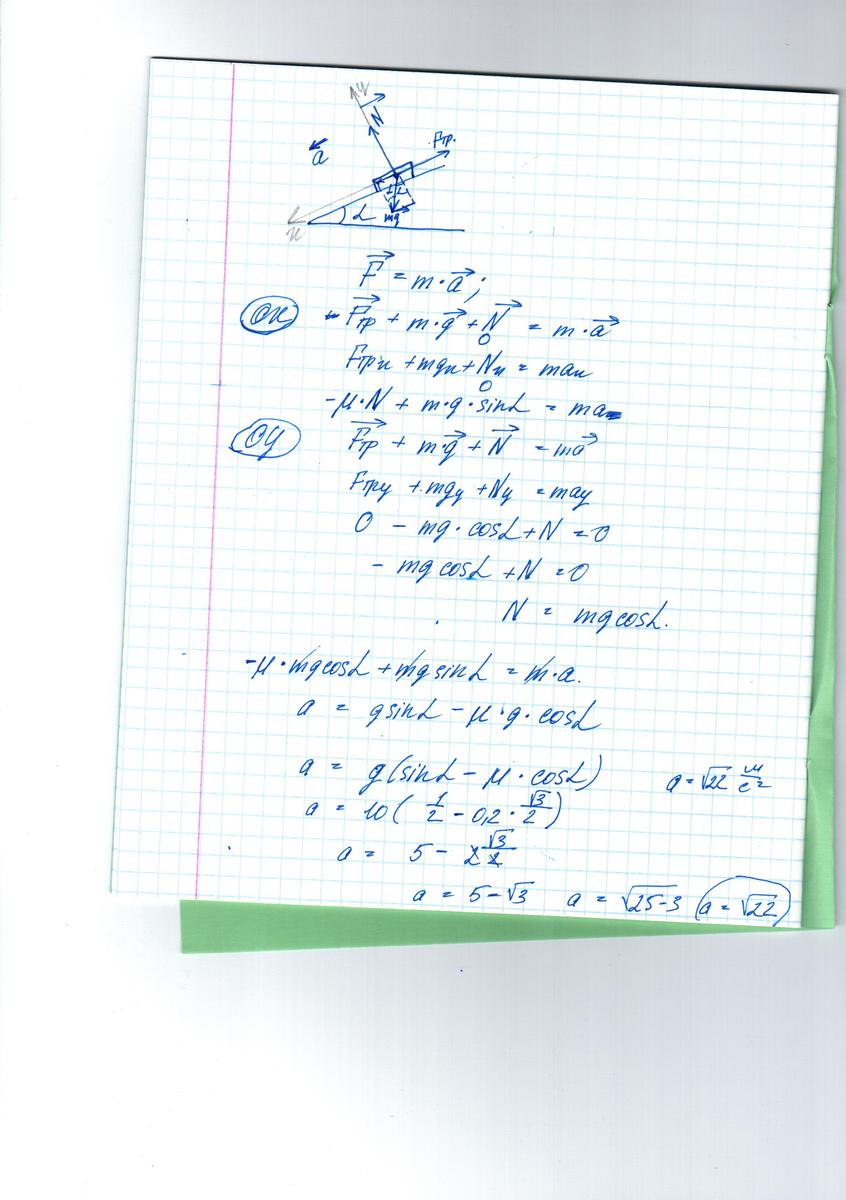 y
N
Fтр.
a
α
α
mg
α
x
F⃗ = m·a⃗;
OX
F⃗тр + m·g⃗ + N⃗ = m·a⃗
0
Fтрx + mgx + Nx = max
0
-μ·N + m·g·sinα = ma
OY
F⃗тр + m·g⃗ + N⃗ = ma⃗
Fтрy + mgy + Ny = may
0 - mg·cosα + N = 0
- mg cosα + N = 0
N = mg cosα.
-μ·mg cosα + mg sinα = m·a.
a = g sinα - μ·g·cosα
a = g(sinα - μ·cosα) a = √22 м/с²
a = 10(1/2 - 0,2·√3/2)
a = 5 - 2 √3/2
a = 5 - √3 a = √25-3 a = √22